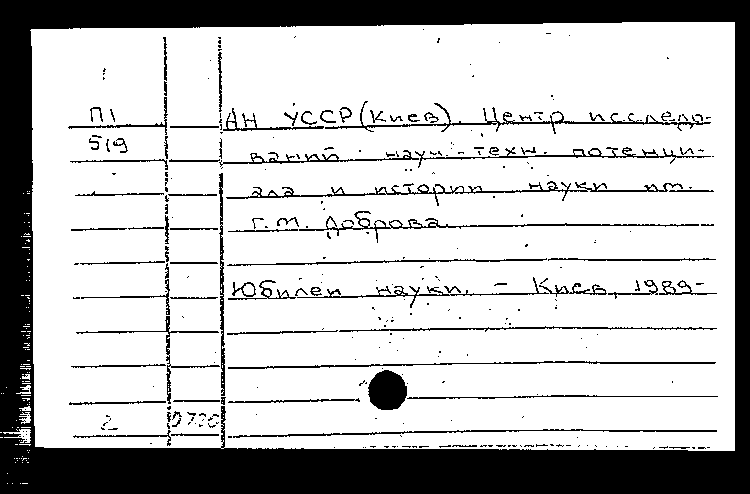 П1 АН УССР (Киев). Центр исследо-
519 ваний науч.-техн. потенци-
ала и истории науки им.
Г.М. Доброва.
Юбилеи науки. - Киев, 1989-
2